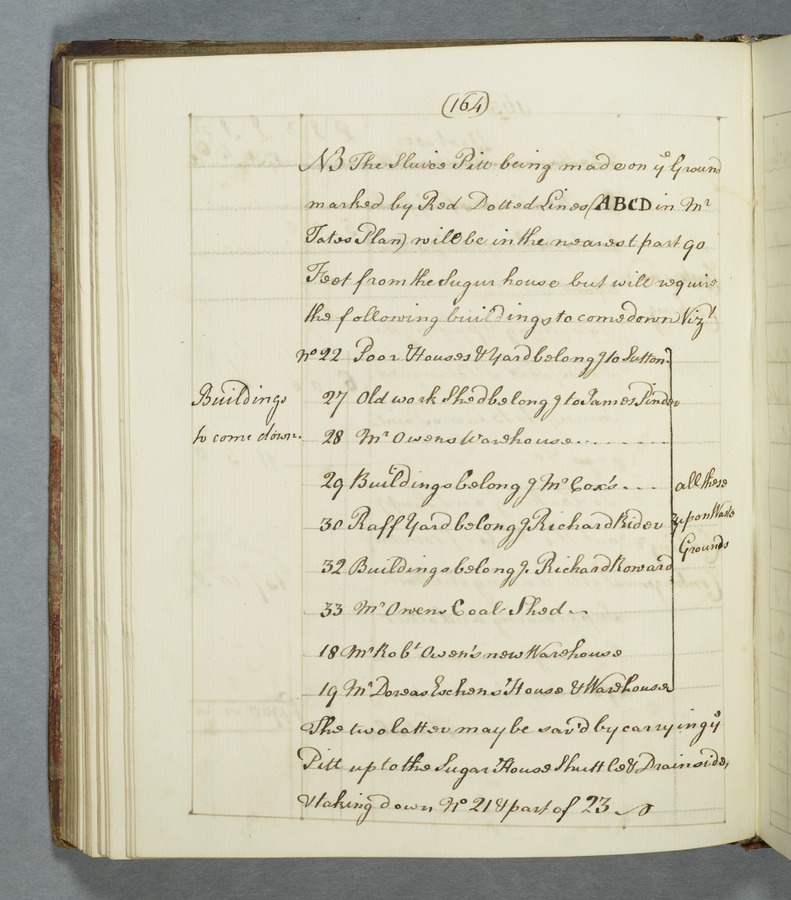 (164)
NB The Sluice Pitt being made on yᵉ Ground
marked by Red Dotted Lines (ABCD in Mʳ
Tates Plan) will be in the nearest part 90
Feet from the Sugar house but will require
the following buildings to come down Vizᵗ
nᵒ 22 Poor Houses & Yard belongᵍ to Sutton
Buildings
to come down.
27 Old work Shed belongᵍ to James Pinder
28 Mʳ Owens Warehouse
29 Buildings belongᵍ Mʳ Cox's
30 Raff Yard belongᵍ Richard Rider
32 Buildings belongᵍ Richard Howard
33 Mʳ Owens Coal Shed
18 Mʳ Robᵗ Owen's new Warehouse
19 Mʳ Dorcas Eschens' House & Warehouse
all these
upon Waste
Grounds
The two latter may be sav'd by carrying yᵉ
Pitt up to the Sugar House Shuttle & Drain side,
& taking down Nᵒ 21 & part of 23